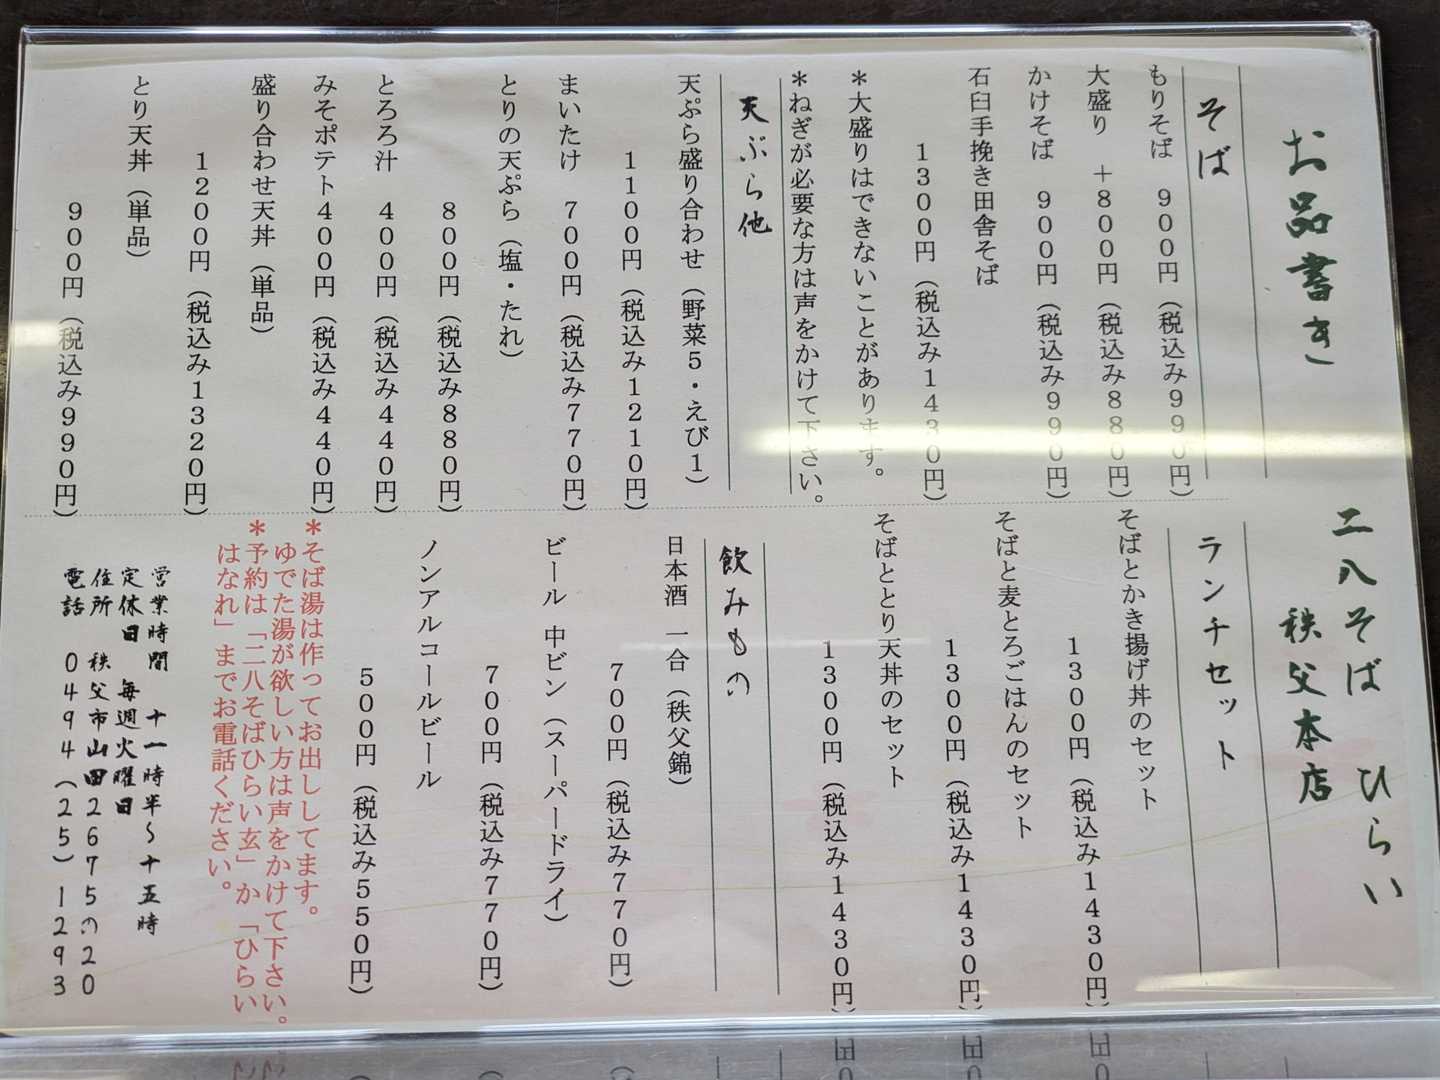 お品書き
二八そば ひらい
秩父本店
そば
もりそば 900円（税込み990円）
大盛り +800円（税込み880円）
かけそば 900円（税込み990円）
石臼手挽き田舎そば
1300円（税込み1430円）
*大盛りはできないことがあります。
*ねぎが必要な方は声をかけて下さい。
天ぷら他
天ぷら盛り合わせ（野菜5・えび1）
1100円（税込み1210円）
まいたけ 700円（税込み770円）
とりの天ぷら（塩・たれ）
800円（税込み880円）
とろろ汁 400円（税込み440円）
みそポテト400円（税込み440円）
盛り合わせ天丼（単品）
1200円（税込み1320円）
とり天丼（単品）
900円（税込み990円）
ランチセット
そばとかき揚げ丼のセット
1300円（税込み1430円）
そばと麦とろごはんのセット
1300円（税込み1430円）
そばととり天丼のセット
1300円（税込み1430円）
飲みもの
日本酒 一合（秩父錦）
700円（税込み770円）
ビール 中ビン（スーパードライ）
700円（税込み770円）
ノンアルコールビール
500円（税込み550円）
*そば湯は作ってお出ししてます。
ゆでた湯が欲しい方は声をかけて下さい。
*予約は「二八そばひらい玄」か「ひらい
はなれ」までお電話ください。
営業時間 十一時半～十五時
定休日 毎週火曜日
住所 秩父市山田2675の20
電話 0494(25)1293